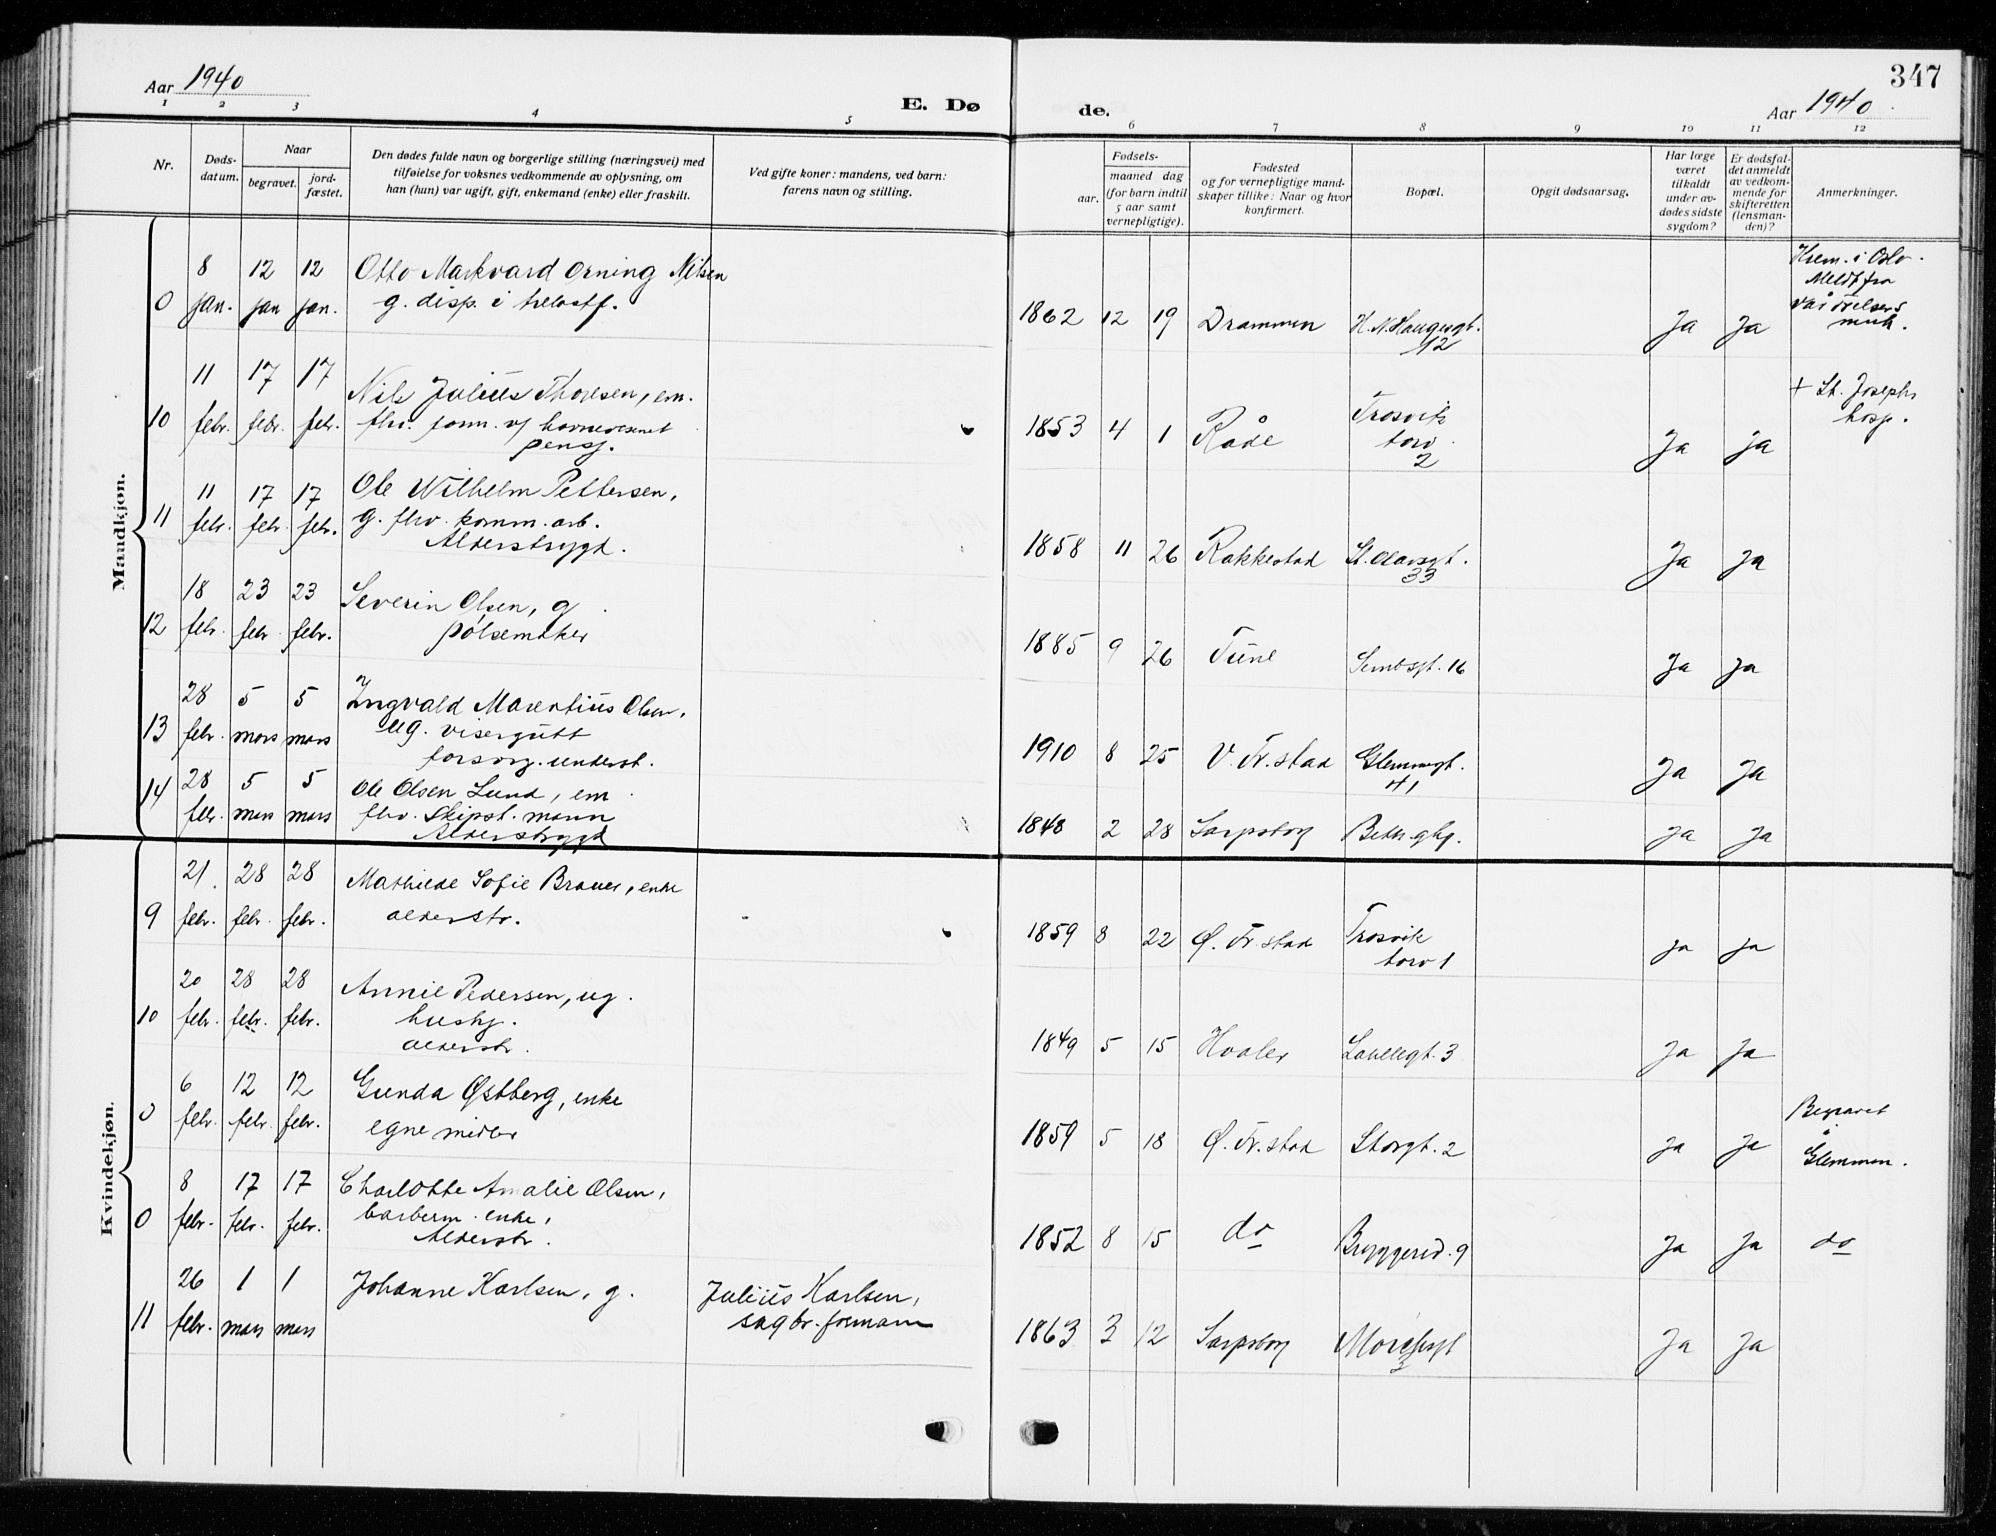 Aar 1940
E. Dø
de.
Aar 1940
347
1 2 3 4 5 6 7 8 9 10 11 12
Nr.
Døds-
datum.
Naar
begravet.
jord-
fæstet.
Den dødes fulde navn og borgerlige stilling (næringsvei) med
tilføielse for voksnes vedkommende av oplysning, om
han (hun) var ugift, gift, enkemand (enke) eller fraskilt.
Ved gifte koner: mandens, ved barn:
farens navn og stilling.
Fødsels-
aar.
maaned dag
(for barn indtil
5 aar samt
vernepligtige).
Fødested
og for vernepligtige mand-
skaper tillike: Naar og hvor
konfirmert.
Bopæl.
Opgit dødsaarsag.
Har læge
været
tilkaldt
under av-
dødes sidste
sygdom?
Er dødsfal-
det anmeldt
av vedkom-
mende for
skifteretten
(lensman-
den)?
Anmerkninger.
Mandkjøn.
0 8 jan. 12 jan 12 jan.
Otto Markvard Orning Nilsen
g. disp. i
1862 12 19 Drammen
H.N.Haugesgt.
12
Ja Ja
Krem. i Oslo.
Meldt fra
10 11 febr. 17 febr. 17 febr.
Nils Julius Thoresen, em.
fhv. form. v/ havnevesenet
pensj.
1853 4 1 Råde
Trosvik
torv
2
Ja ja
+ St. Josephs
hosp.
11 11 febr. 17 febr. 17 febr.
Ole Wilhelm Pettersen,
g. fhv. komm. arb.
Alderstrygd.
1858 11 26 Rakkestad
St. Olavsgt.
33
Ja ja
12 18 febr. 23 febr 23 febr.
Severin Olsen, g
pølsemaker
1885 9 26 Tune
Sembsgt. 16
Ja ja
13 28 febr. 5 mars 5 mars
Ingvald Marentius Olsen,
ug. visergutt
forsorg. underst.
1910 8 25 V. Fr.stad
Glemmegt.
41
Ja Ja
14 28 febr. 5 mars 5 mars
Ole Olsen Lund, em
fhv. Skipst. mann
Alderstrygd
1848 2 28 Sarpsborg
ja Ja
Kvindekjøn.
9 21 febr. 28 febr. 28 febr.
Mathilde Sofie Brauer, enke
alderstr.
1859 8 22 Ø. Fr.stad
Trosvik
torv 1
ja ja
10 20 febr. 28 febr. 28 febr.
Annie Pedersen, ug.
hushj.
alderstr.
1849 5 15 Hvaler
3
Ja Ja
0 6 febr. 12 febr. 12 febr.
Gunda Østberg, enke
egne midler
1859 5 18 Ø. Fr.stad
Storgt. 2
ja Ja
Begravet
å
Glemmen.
0 8 febr. 17 febr. 17 febr.
Charlotte Amalie Olsen,
barberm. enke,
Alderstr.
1852 8 15 do
Bryggerid. 9
Ja Ja
do
11 26 febr. 1 mars 1 mars
Johanne Karlsen, g.
Julius Karlsen,
sagbr. formann
1863 3 12 Sarpsborg
3
Ja Ja